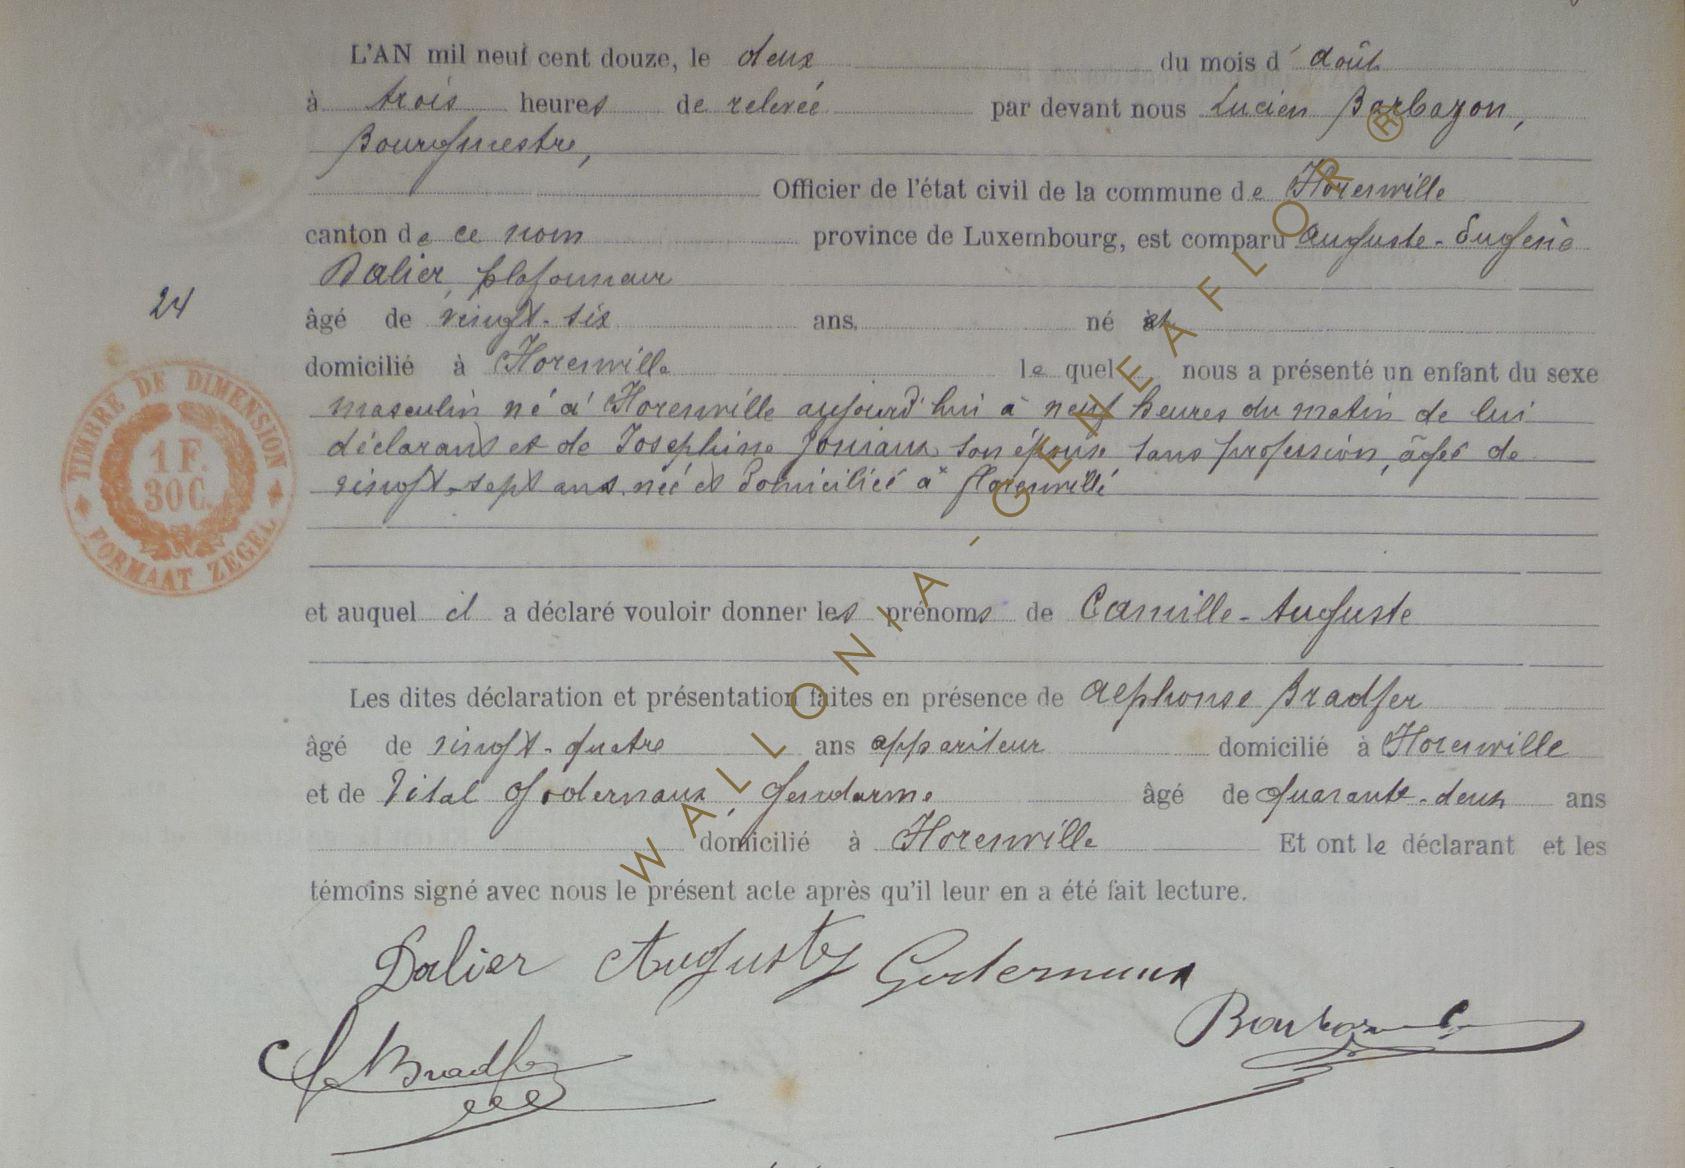 L'AN mil neuf cent douze, le deux du mois d' août
à trois heures de relevée par devant nous Lucien Barbazon,
Bourgmestre,
Officier de l'état civil de la commune de Florenville
canton de ce nom province de Luxembourg, est comparu Auguste-Eugène
Dalier, plafonneur
24
âgé de vingt-six ans, né et
domicilié à Florenville le quel nous a présenté un enfant du sexe
masculin né à Florenville aujourd'hui à neuf heures du matin de lui
déclarant et de Josephine Joniaux son épouse sans profession, âgée de
vingt-sept ans née et domiciliée à Florenville
TIMBRE DE DIMENSION
1 F.
30 C.
FORMAAT ZEGEL
et auquel il a déclaré vouloir donner les prénoms de Camille-Auguste
Les dites déclaration et présentation faites en présence de Alphonse Bradfer
âgé de vingt-quatre ans appariteur domicilié à Florenville
et de Vital Godernaux, gendarme âgé de quarante-deux ans
domicilié à Florenville Et ont le déclarant et les
témoins signé avec nous le présent acte après qu'il leur en a été fait lecture.
Dalier Auguste Godernaux
Bradfer
WALLONIA - GENEAFLOR ®